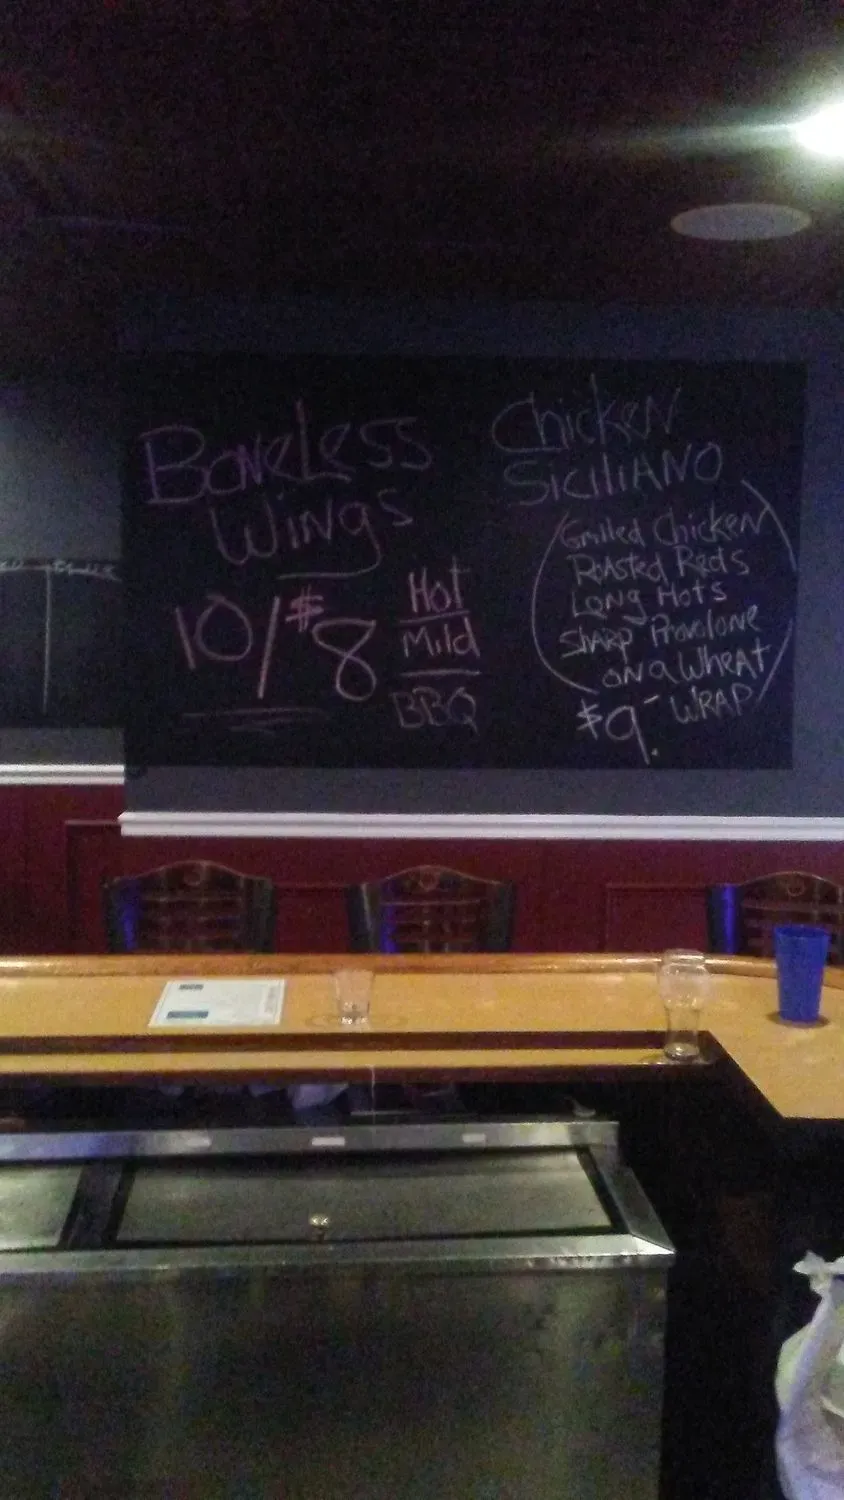 BoneLess
Wings
10/$8
Hot
Mild
BBQ
Chicken
SiciliANO
Grilled Chicken
Roasted Reds
Long Hots
Sharp Provolone
on a Wheat
WRAP
$9.-